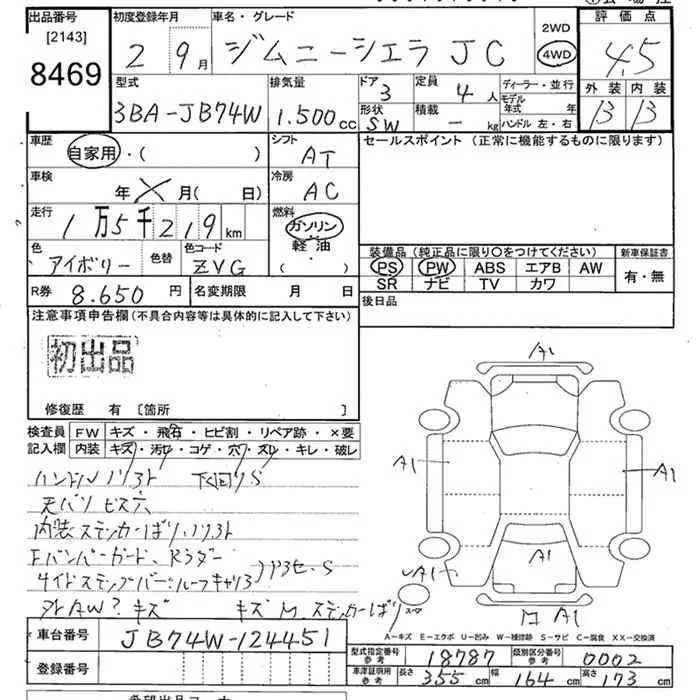 出品番号 初度登録年月 車名・グレード 2WD 評価点
[2143] 2 9月 ジムニーシエラ JC 4WD 4.5
8469
型式 排気量 ドア 定員 ディーラー・並行 外装 内装
3BA-JB74W 1.500cc 3 4人 モデル年式 年 B B
形状 積載
SW - kg ハンドル 左・右
車歴 自家用・( ) シフト AT セールスポイント (正常に機能するものに限ります)
車検 年 月( 日) 冷房 AC
走行 1万5千219km 燃料 ガソリン
軽油
・( )
色 アイボリー 色替 色コード ZVG
装備品(純正品に限り○をつけてください) 新車保証書
PS PW ABS エアB AW 有・無
SR ナビ TV カワ
R券 8.650円 名変期限 月 日 後日品
注意事項申告欄(不具合内容等は具体的に記入して下さい)
初出品
修復歴 有 [箇所 ]
検査員 FW キズ・飛石・ヒビ割・リペア跡・×要
記入欄 内装 キズ・汚レ・コゲ・穴・スレ・キレ・破レ
ハンドルノリフト 下回りS
ビス穴
内装ステッカーばり
Fバンパーガード、
サイドステップバー・ルーフキャリア
外AW キズ キズ M ステッカーばり
A1
A1 A1
A1
A1
A1
A-キズ E-エクボ U-凹み W-補修跡 S-サビ C-腐食 XX-交換済
車台番号 JB74W-124451
登録番号
型式指定番号 参考 18787 類別区分番号 参考 0002
車庫証明用 参考 長さ 355cm 幅 164cm 高さ 173cm